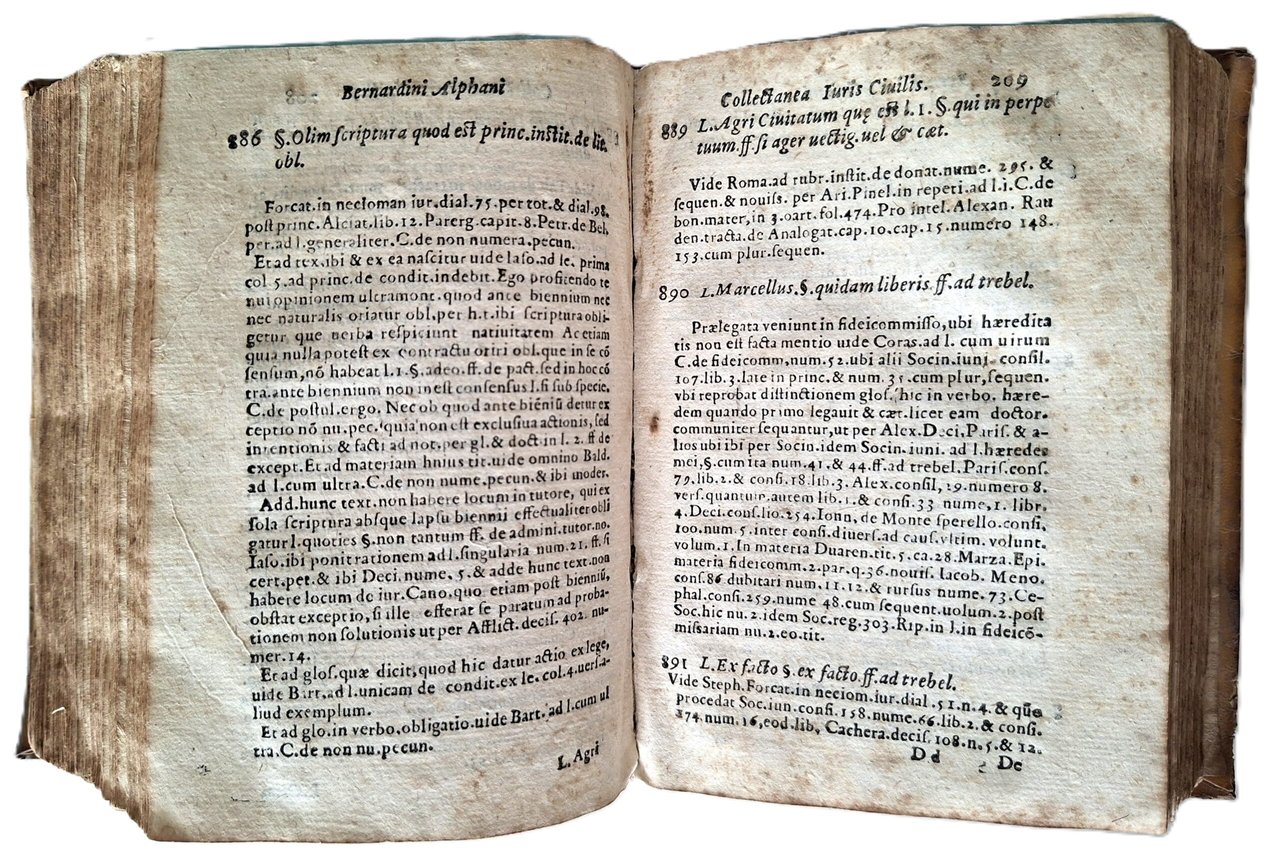 Bernardini Alphani
886 §. Olim scriptura quod est princ.instit.de lit.
obl.
Forcat.in necioman iur.dial.75.per tot.& dial.98.
post princ. Alciat.lib.12.Parerg.capit.8.Petr.de Bel.
per.ad l.generaliter.C.de non numera.pecun.
Et ad tex.ibi & ex ea nascitur uide Iaso.ad le. prima
col 5.ad princ.de condit.indebit.Ego profitendo te
nui opinionem ultramont.quod ante biennium nec
nec naturalis oriatur obl.per h.t.ibi scriptura obli-
getur que uerba respiciunt natiuitatem Ac etiam
quia nulla potest ex contractu oriri obl.que in se cō
sensum,nō habeat l.1.§.adeo.ff.de pact.sed in hoc cō
tra.ante biennium non inest consensus l.si sub specie.
C.de postul.ergo. Nec ob quod ante biēniū detur ex
ceptio nō nu.pec.quia non est exclusiua actionis, sed
intentionis & facti ad not.per gl.& doct.in l. 2. ff de
except. Et ad materiam hnius tit.uide omnino Bald.
ad l.cum ultra.C.de non nume.pecun.& ibi moder.
Add.hunc text.non habere locum in tutore, qui ex
sola scriptura absque lapsu biennii effectualiter obli
gatur l.quoties §.non tantum ff. de admini.tutor.no.
Iaso.ibi ponit rationem ad l.singularia num.21. ff.si
cert.pet.& ibi Deci.nume. 5.& adde hunc text.non
habere locum de iur.Cano.quo etiam post bienniū,
obstat exceptio, si ille offerat se paratum ad proba-
tionem non solutionis ut per Afflict.decis. 402. nu-
mer.14.
Et ad glos.quæ dicit,quod hic datur actio ex lege,
uide Bart.ad l.unicam de condit.ex le.col.4.uers.a-
liud exemplum.
Et ad glo.in verbo.obligatio.uide Bart. ad l.cum ul
tra.C.de non nu.pecun.
L. Agri
Collectanea Iuris Ciuilis. 209
889 L.Agri Ciuitatum quę est l.1.§.qui in perpe
tuum.ff.si ager uectig.uel & cæt.
Vide Roma.ad rubr.instit.de donat.nume. 295. &
sequen.& nouiss. per Ari.Pinel.in repeti.ad l.i.C.de
bon.mater,in 3.oart.fol.474.Pro intel.Alexan. Rau
den.tracta.de Analogat.cap.10.cap.15.numero 148.
153.cum plur.sequen.
890 L.Marcellus.§.quidam liberis.ff.ad trebel.
Prælegata veniunt in fideicommisso,ubi hæredita
tis non est facta mentio uide Coras.ad l. cum uirum
C.de fideicomm,num.52.ubi alii Socin.iuni. consil.
107.lib.3.late in princ.& num.35.cum plur,sequen.
vbi reprobat distinctionem glos. hic in verbo. hære-
dem quando primo legauit & cæt.licet eam doctor.
communiter sequantur,ut per Alex.Deci,Paris.& a-
lios ubi ibi per Socin.idem Socin.iuni. ad l.hæredes
mei,§.cum ita num.41.& 44.ff.ad trebel.Paris.cons.
79.lib.2.& consi.18.lib.3. Alex.consil, 29.numero 8.
vers.quantum.autem lib.1.& consi.33 nume,1. libr.
4.Deci.cons.lio.254.Ionn, de Monte sperello.consi,
100.num.5.inter consi.diuers.ad caus.vltim. volunt.
volum.1.In materia Duaren.tit.5.ca.28.Marza. Epi.
materia fideicomm.2.par.q.36.nouiss.Iacob. Meno.
cons.86 dubitari num.11.12.& rursus nume. 73.Ce-
phal.consi.259.nume 48.cum sequent.uolum.2.post
Soc.hic nu.2.idem Soc.reg.303.Rip.in l.in fideicō-
missariam nu.2.eo.tit.
891 L.Ex facto §.ex facto.ff.ad trebel.
Vide Steph.Forcat.in neciom.iur.dial.51.n.4.& qūo
procedat Soc.iun.consi.158.nume.66.lib.2.& consi.
174.num.16,eod.lib, Cachera.decis.108.n.5.& 12.
D d De